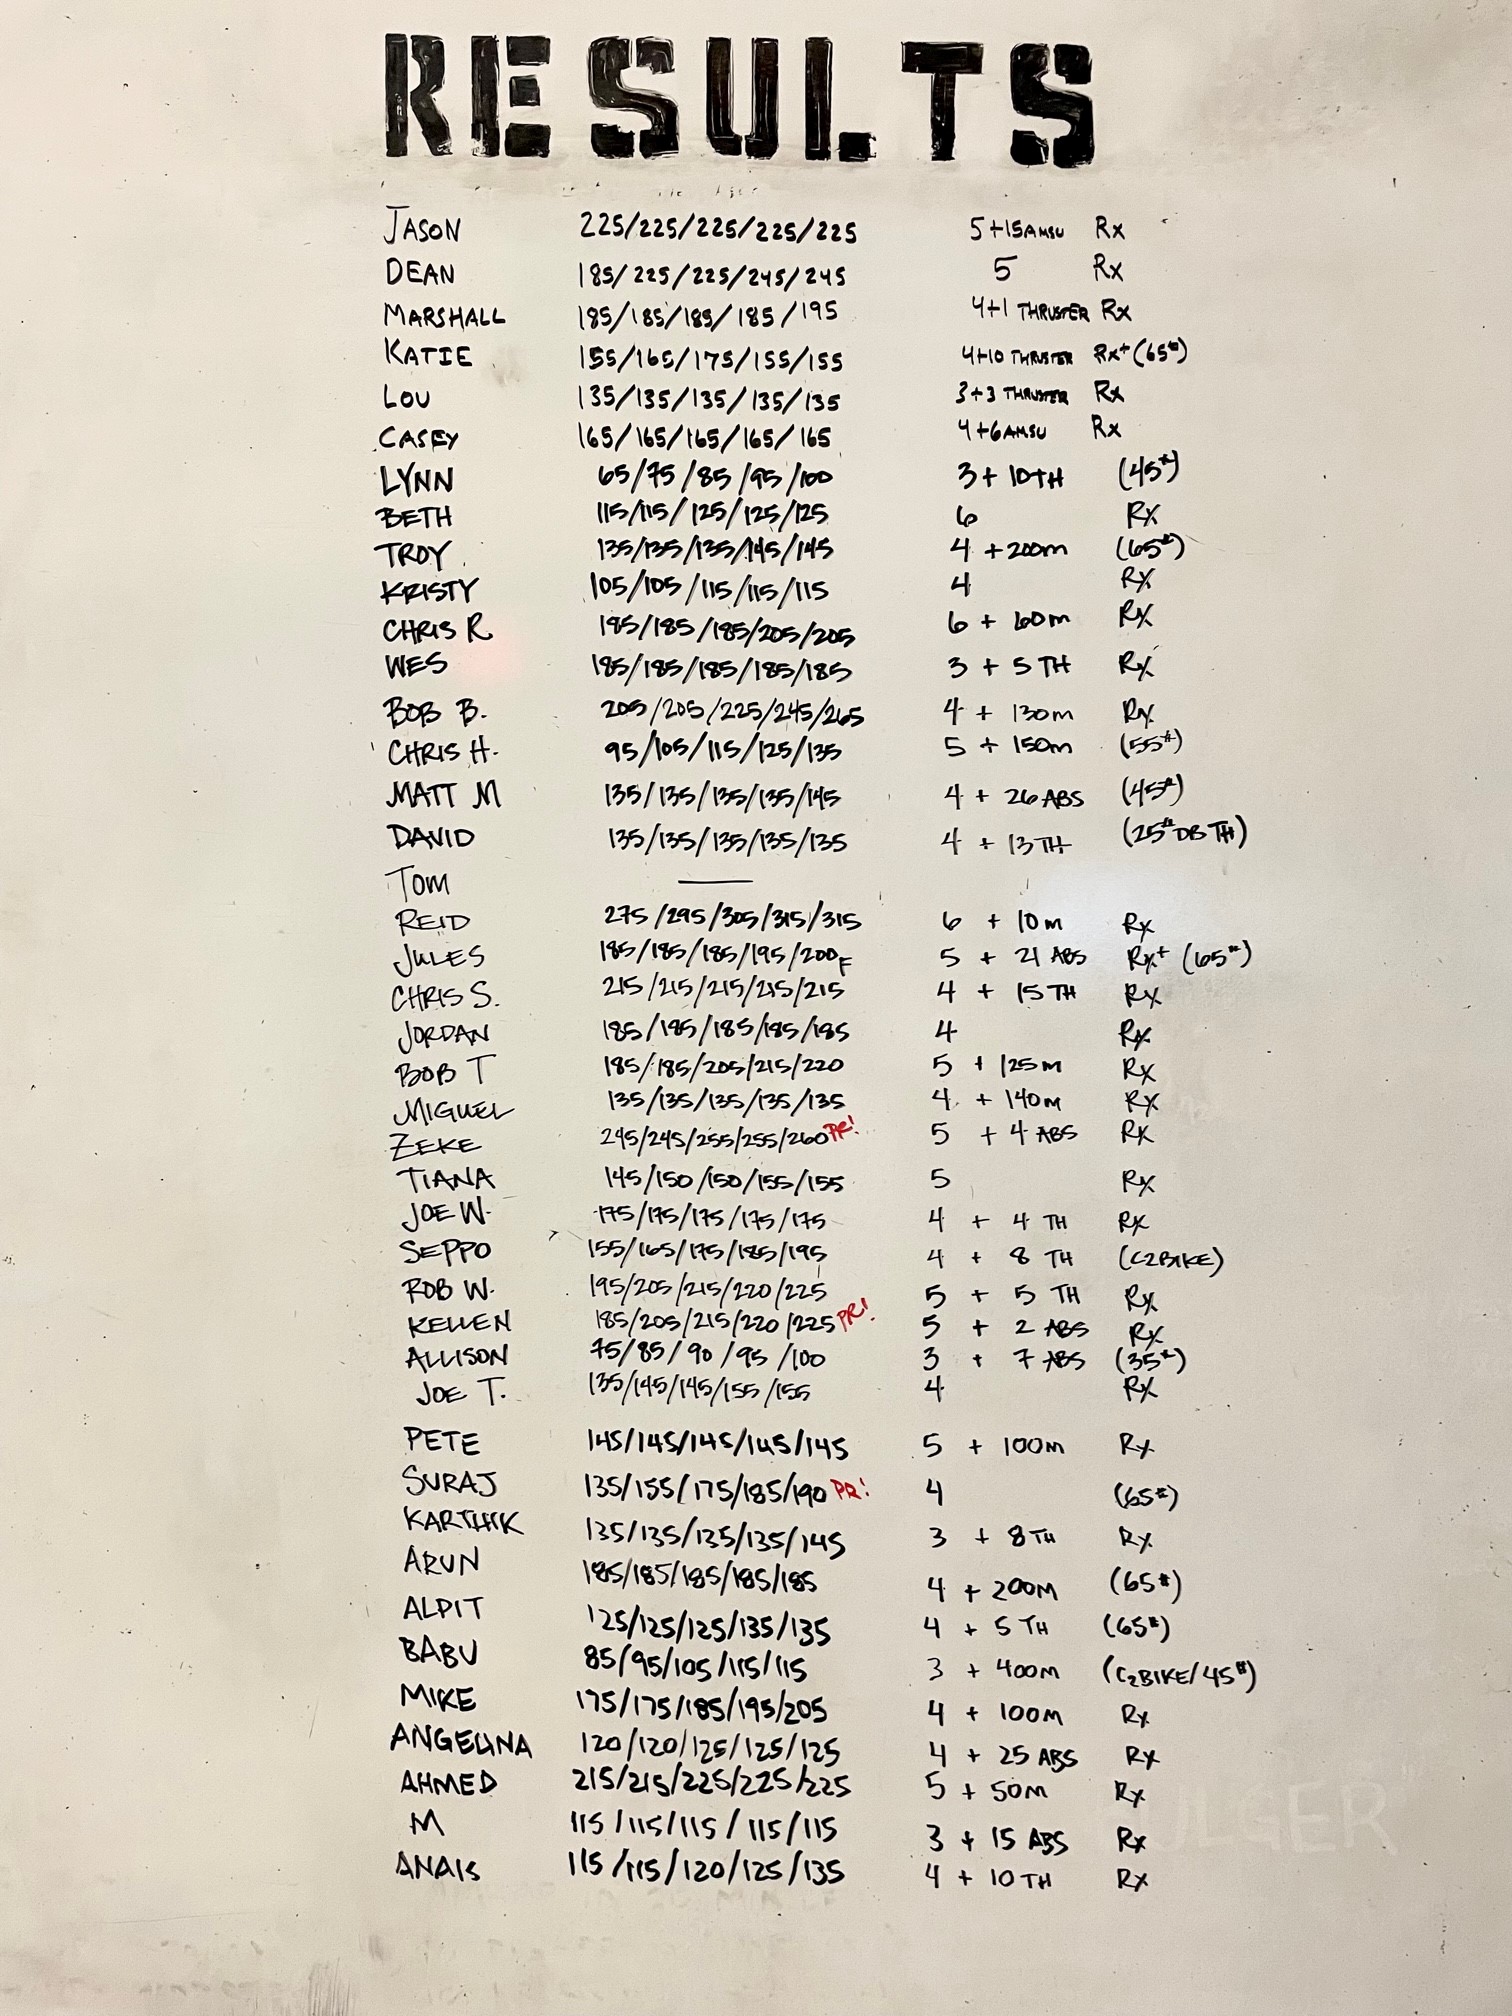 RESULTS
JASON 225/225/225/225/225 5+15AMSU Rx
DEAN 185/225/225/245/245 5 Rx
MARSHALL 185/185/185/185/195 4+1 THRUSTER Rx
KATIE 155/165/175/155/155 4+10 THRUSTER Rx+(65#)
LOU 135/135/135/135/135 3+3 THRUSTER Rx
CASEY 165/165/165/165/165 4+6AMSU Rx
LYNN 65/75/85/95/100 3+10TH (45#)
BETH 115/115/125/125/125 6 Rx
TROY 135/135/135/145/145 4 +200m (65#)
KRISTY 105/105/115/115/115 4 Rx
CHRIS R 185/185/185/205/205 6 + 60m Rx
WES 185/185/185/185/185 3 + 5 TH Rx
BOB B. 205/205/225/245/265 4 + 130m Rx
CHRIS H. 95/105/115/125/135 5 + 150m (55#)
MATT M 135/135/135/135/145 4 + 26 ABS (45#)
DAVID 135/135/135/135/135 4 + 13TH (25# DB TH)
TOM —
REID 275/295/305/315/315 6 + 10m Rx
JULES 185/185/185/195/200F 5 + 21 ABS Rx+ (65#)
CHRIS S. 215/215/215/215/215 4 + 15 TH Rx
JORDAN 185/185/185/185/185 4 Rx
BOB T 185/185/205/215/220 5 + 125m Rx
MIGUEL 135/135/135/135/135 4 + 140m Rx
ZEKE 245/245/255/255/260 PR! 5 + 4 ABS Rx
TIANA 145/150/150/155/155 5 Rx
JOE W. 175/175/175/175/175 4 + 4 TH Rx
SEPPO 155/165/175/185/195 4 + 8 TH (C2BIKE)
ROB W. 195/205/215/220/225 5 + 5 TH Rx
KELLEN 185/205/215/220/225 PR! 5 + 2 ABS Rx
ALLISON 75/85/90/95/100 3 + 7 ABS (35#)
JOE T. 135/145/145/155/155 4 Rx
PETE 145/145/145/145/145 5 + 100m Rx
SURAJ 135/155/175/185/190 PR! 4 (65#)
KARTHIK 135/135/135/135/145 3 + 8TH Rx
ARUN 185/185/185/185/185 4 + 200M (65#)
ALPIT 125/125/125/135/135 4 + 5 TH (65#)
BABU 85/95/105/115/115 3 + 400m (C2BIKE/45#)
MIKE 175/175/185/195/205 4 + 100M Rx
ANGELINA 120/120/125/125/125 4 + 25 ABS Rx
AHMED 215/215/225/225/225 5 + 50m Rx
M 115/115/115/115/115 3 + 15 ABS Rx
ANAIS 115/115/120/125/135 4 + 10 TH Rx